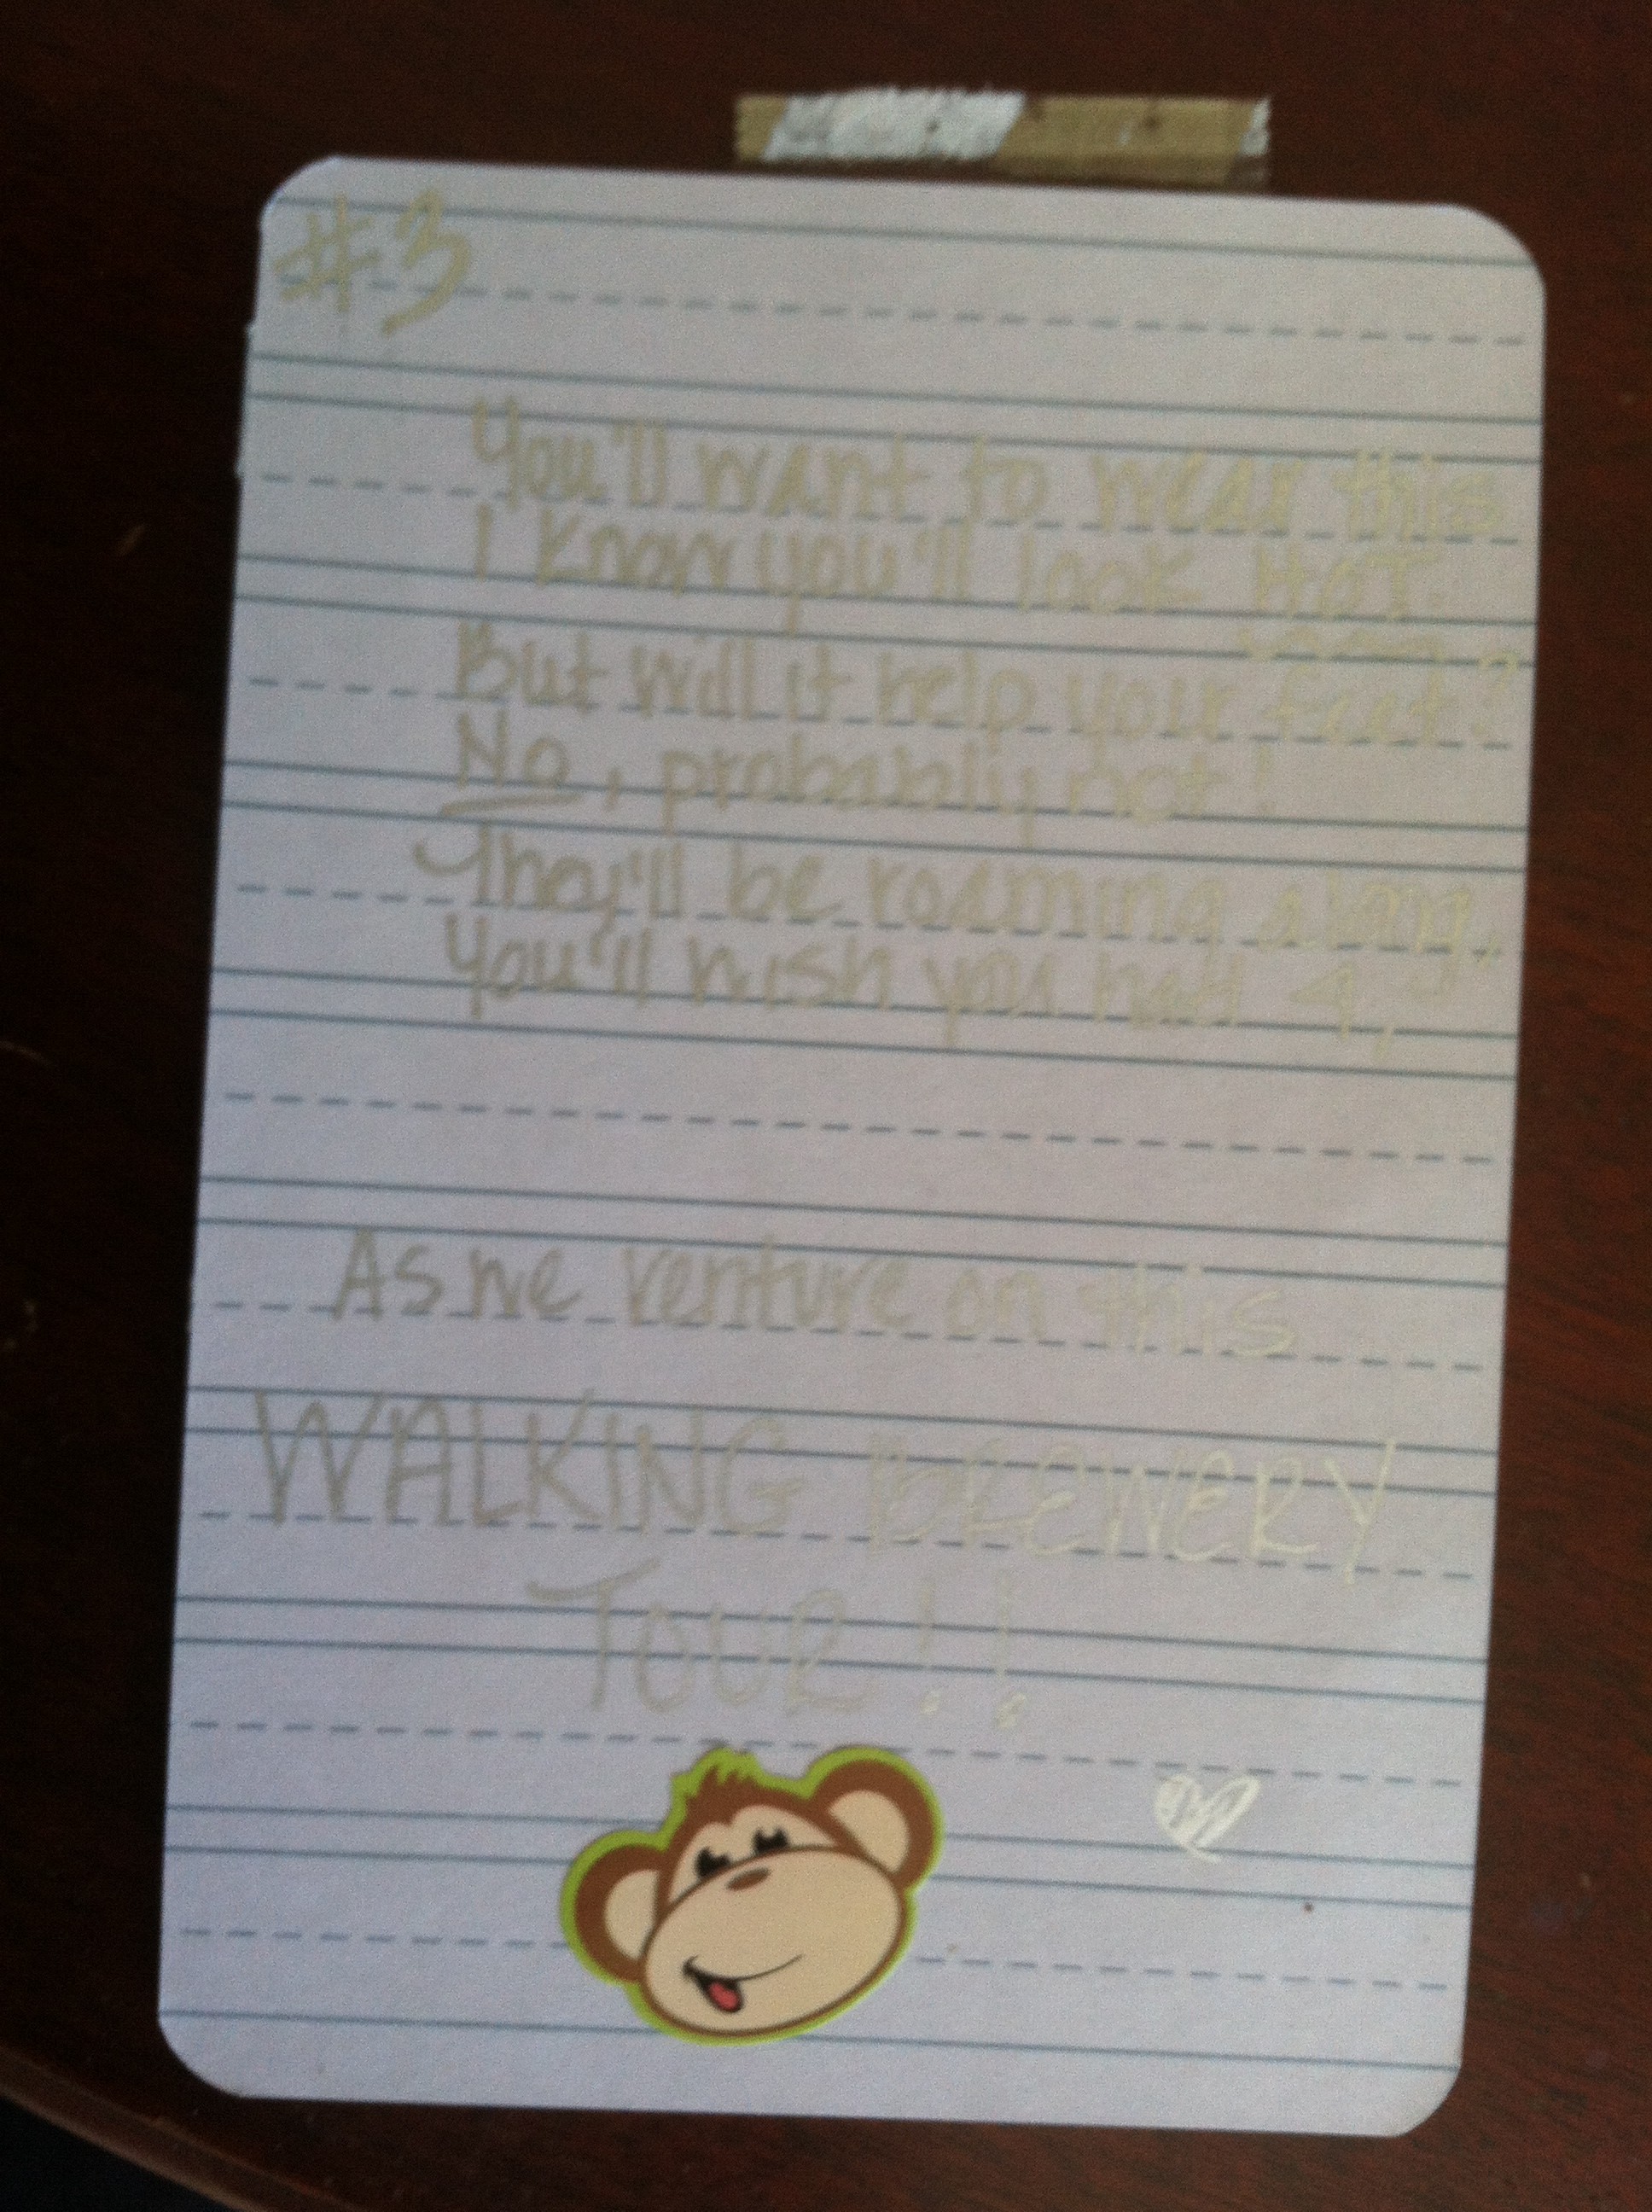 #3
You'll want to wear this
I know you'll look HOT.
But will it help your feet?
No, probably not!
They'll be roaming along,
You'll wish you had 4,
As we venture on this
WALKING BREWERY
TOUR!!